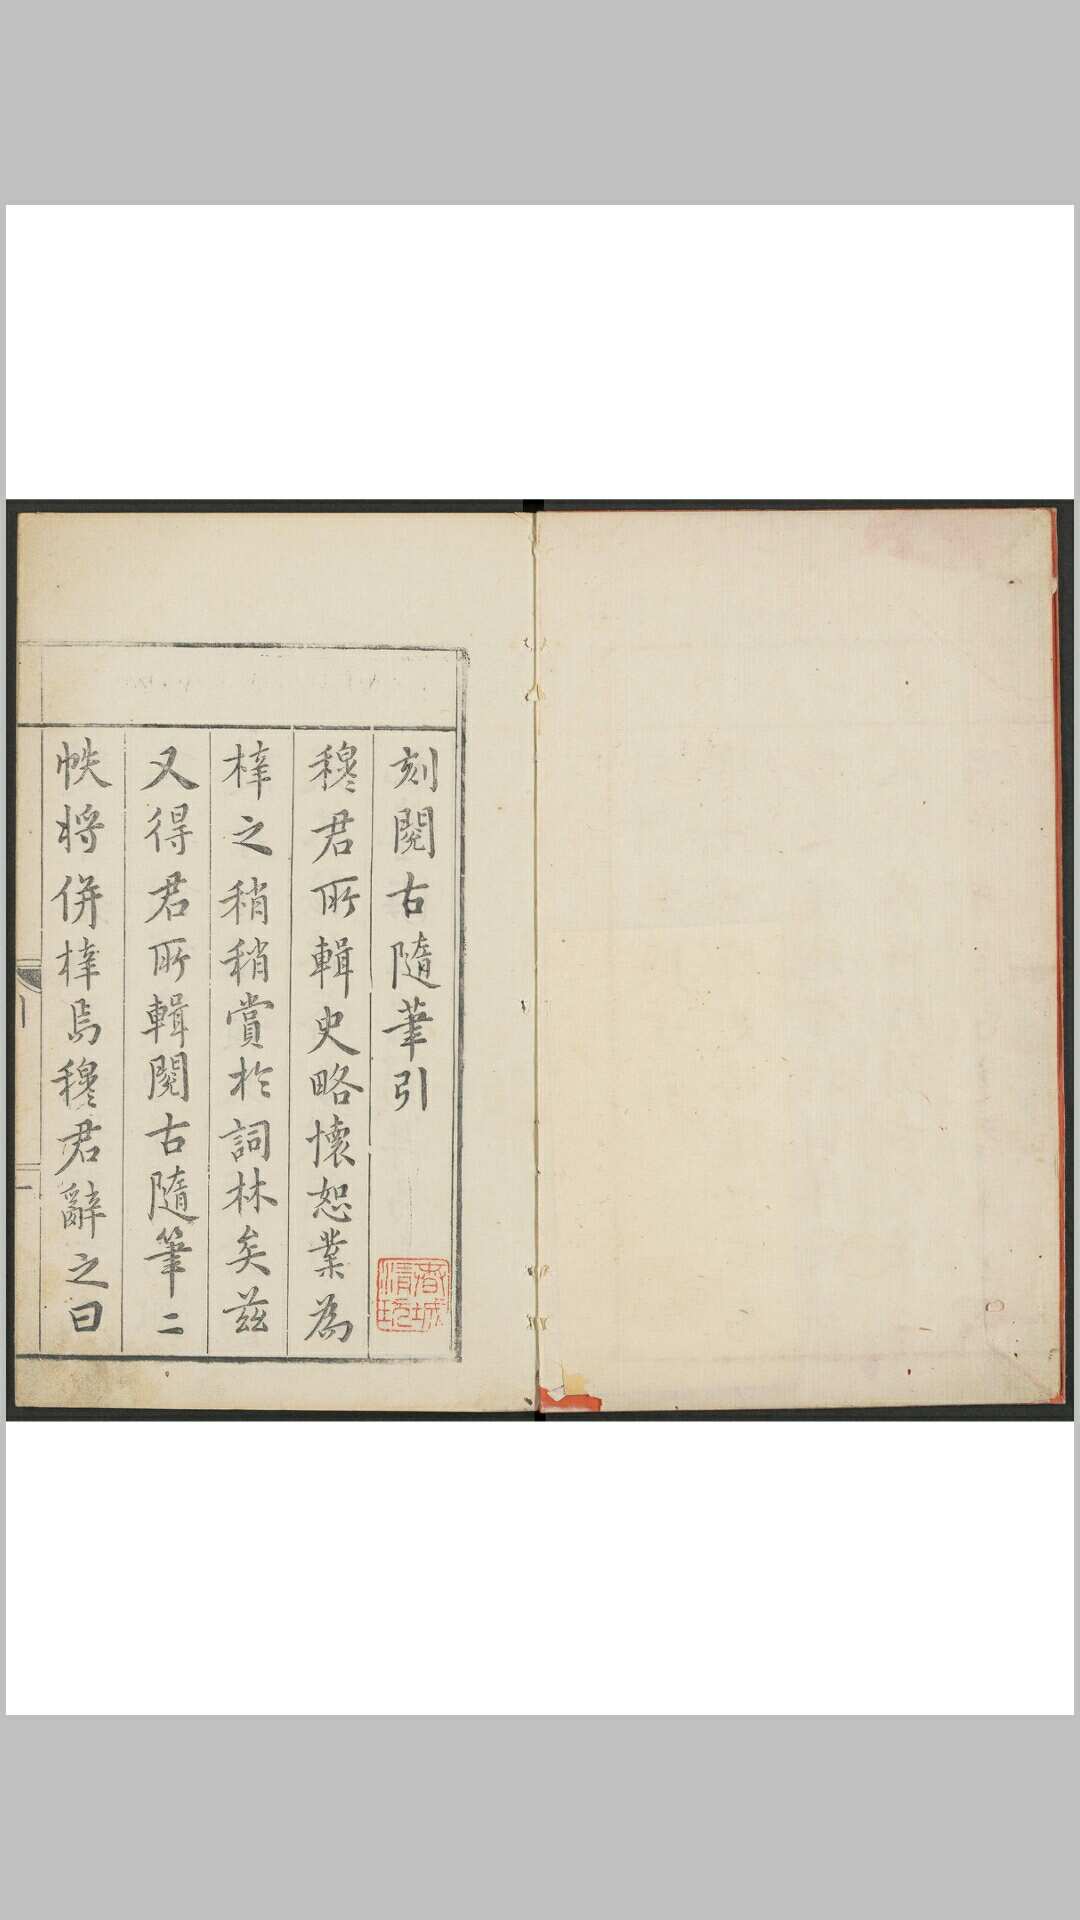 刻閱古隨筆引
穆君所輯史略懷恕業為
梓之稍稍賞於詞林矣兹
又得君所輯閱古隨筆二
帙將併梓焉穆君辭之曰